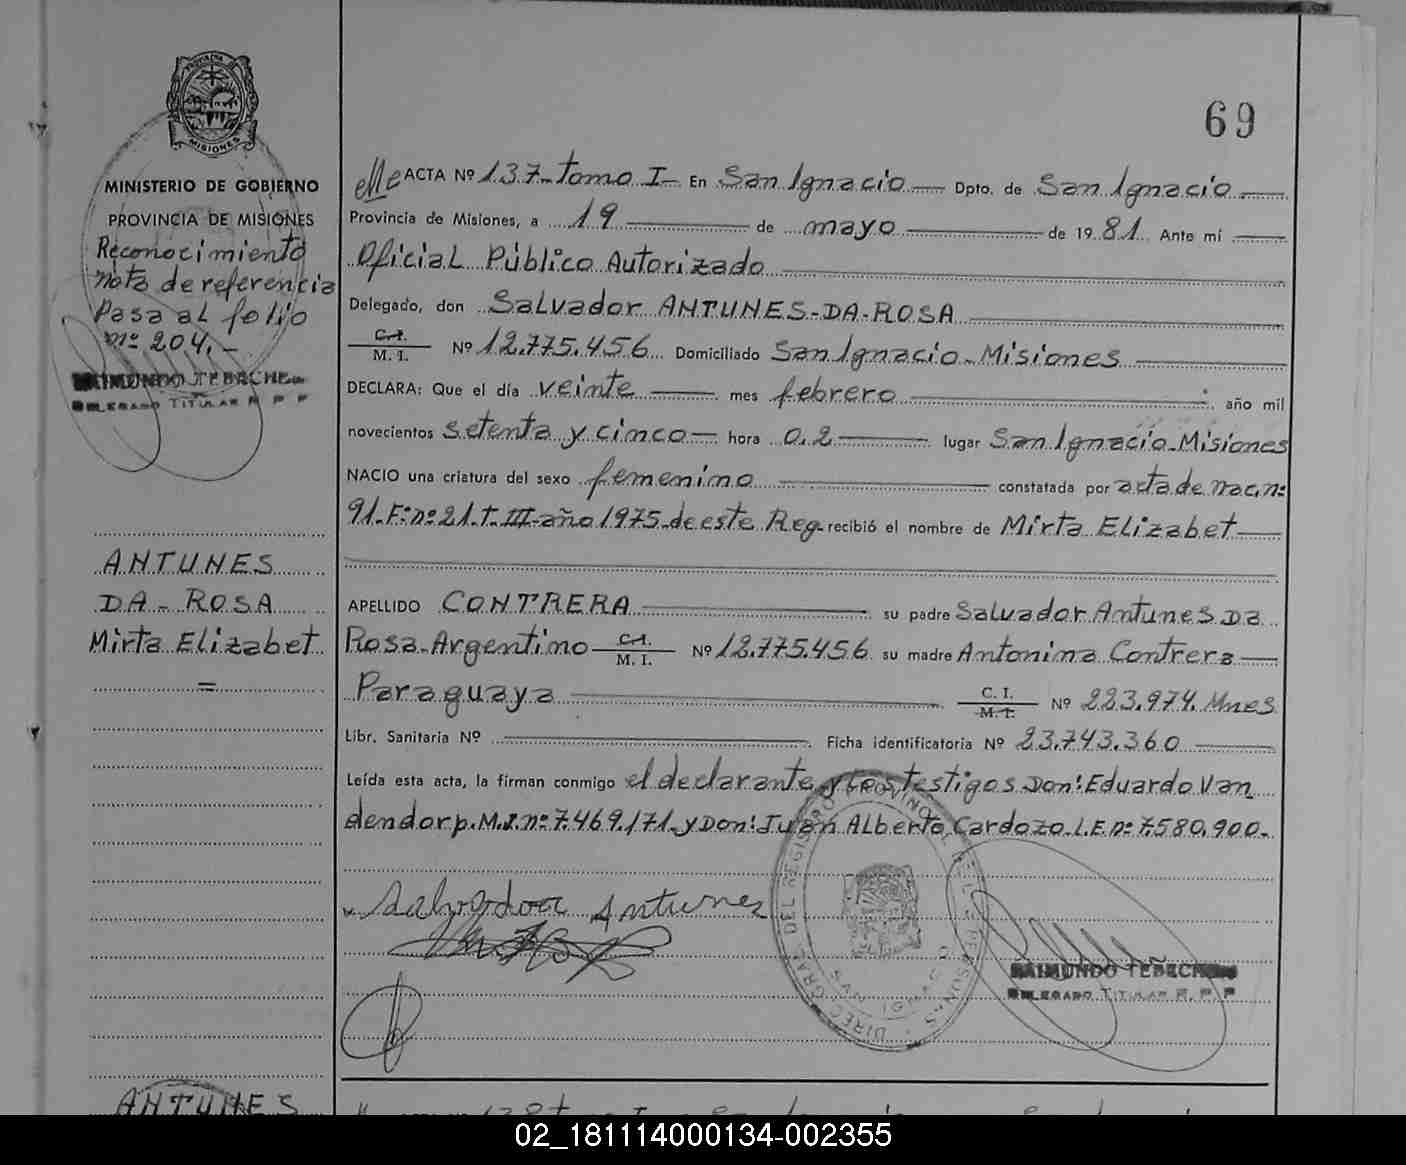 PROVINCIA DE
MISIONES
MINISTERIO DE GOBIERNO
PROVINCIA DE MISIONES
Reconocimiento
nota de referencia
Pasa al folio
nº 204.-
RAIMUNDO TEBECHE
DELEGADO TITULAR R P P
ANTUNES
DA-ROSA
Mirta Elizabet
=
ANTUNES
69
ACTA Nº 137-tomo I- En San Ignacio Dpto. de San Ignacio
Provincia de Misiones, a 19 de mayo de 1981. Ante mí
Oficial Público Autorizado
Delegado, don Salvador ANTUNES-DA-ROSA
C.I.
M. I. Nº 12.775.456 Domiciliado San Ignacio-Misiones
DECLARA: Que el día veinte mes febrero año mil
novecientos setenta y cinco hora 0.2 lugar San Ignacio-Misiones
NACIO una criatura del sexo femenino constatada por acta de nac.nº
91-Fº nº 21-T-III-año 1975-de este Reg. recibió el nombre de Mirta Elizabet
APELLIDO CONTRERA su padre Salvador Antunes Da
Rosa-Argentino C.I. M. I. Nº 12.775.456 su madre Antonina Contrera
Paraguaya C. I. M. I. Nº 223.974. Mnes
Libr. Sanitaria Nº Ficha identificatoria Nº 23.743.360
Leída esta acta, la firman conmigo el declarante y los testigos Don: Eduardo Van
dendorp. M.I. nº 7.469.171-y Don: Juan Alberto Cardozo-L.E. nº 7.580.900-
Salvador Antunes
SAN IGNACIO
RAIMUNDO TEBECHE
DELEGADO TITULAR R. P. P
02_181114000134-002355